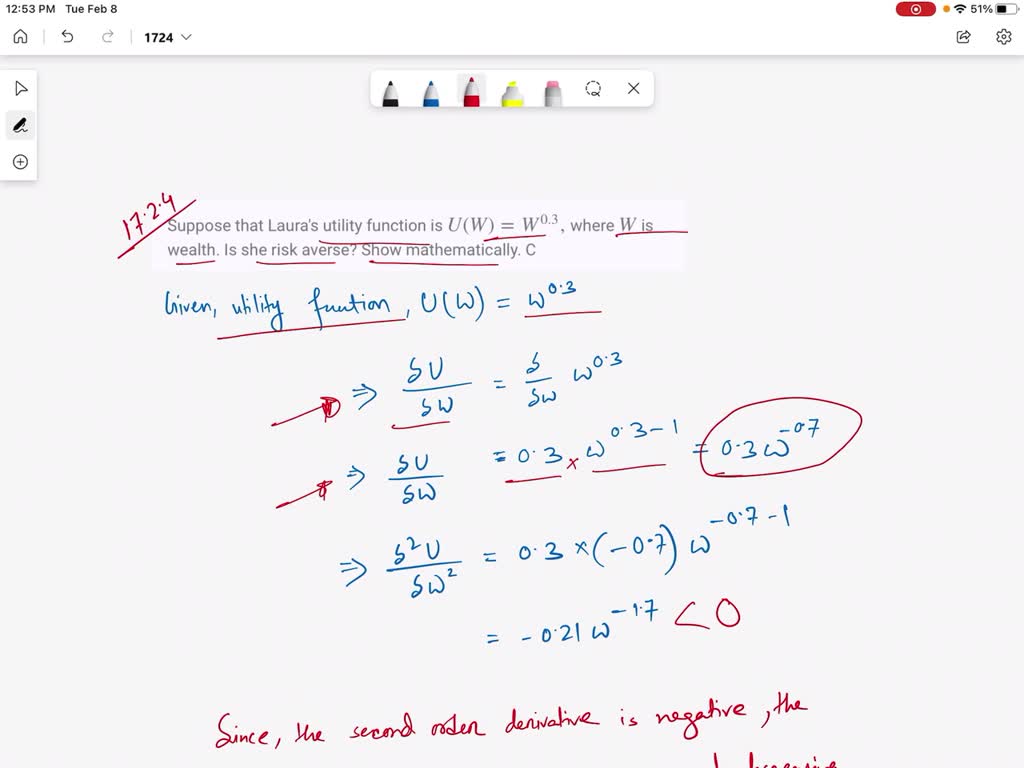 12:53 PM Tue Feb 8
51%
1724
17.2.4
Suppose that Laura's utility function is U(W) = W^0.3, where W is
wealth. Is she risk averse? Show mathematically. C
Given, utility function, U(W) = W^0.3
⇒ δU/δW = δ/δW W^0.3
⇒ δU/δW = 0.3 × W^0.3-1 = 0.3W^-0.7
⇒ δ²U/δW² = 0.3 × (-0.7) W^-0.7-1
= -0.21 W^-1.7 < 0
Since, the second order derivative is negative, the